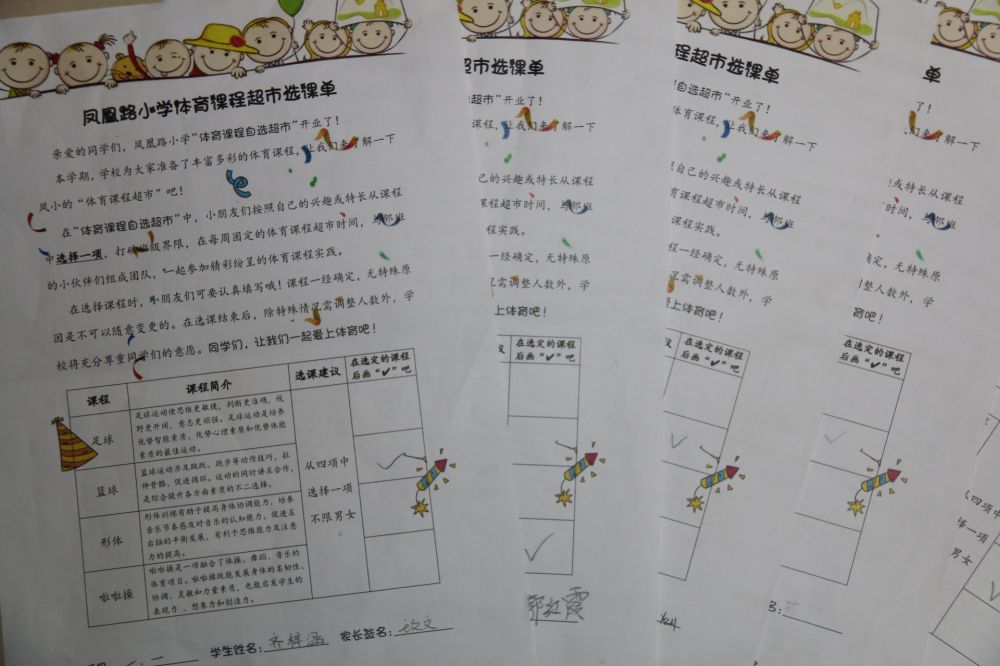 凤凰路小学体育课程超市选课单
亲爱的同学们，凤凰路小学“体育课程自选超市”开业了！
本学期，学校为大家准备了丰富多彩的体育课程，让我们来了解一下
凤小的“体育课程超市”吧！
在“体育课程自选超市”中，小朋友们按照自己的兴趣或特长从课程
中选择一项，打破班级界限，在每周固定的体育课程超市时间，与邻班
的小伙伴们组成团队，一起参加精彩纷呈的体育课程实践。
在选择课程时，小朋友们可要认真填写哦！课程一经确定，无特殊原
因是不可以随意变更的。在选课结束后，除特殊情况需调整人数外，学
校将充分尊重同学们的意愿。同学们，让我们一起爱上体育吧！
课程 课程简介 选课建议 在选定的课程
后画“✔”吧
足球
足球运动使思维更敏捷，判断更准确，视
野更开阔，意志更顽强。足球运动是培养
优势智能素质、优势心理素质和优势体能
素质的最佳运动。
篮球
篮球运动涉及跳跃、跑步等动作技巧，拉
伸骨骼，促进循环。运动的同时讲求合作，
是综合提升各方面素质的不二选择。
形体
形体训练有助于提高身体协调能力，培养
音乐节奏感及对音乐的认知能力，促进左
右脑的平衡发展，有利于思维能力及注意
力的提高。
啦啦操
啦啦操是一项融合了体操、舞蹈、音乐的
体育项目。啦啦操既能发展身体的柔韧性、
协调、灵敏和力量素质，也能启发学生的
表现力、想象力和创造力。
从四项中
选择一项
不限男女
学生姓名：齐梓涵 家长签名：
超市选课单
超市”开业了！
课程，让我们来了解一下
己的兴趣或特长从课程
课程超市时间，与邻班
程实践。
一经确定，无特殊原
需调整人数外，学
上体育吧！
议 在选定的课程
后画“✔”吧
郭红霞
程超市选课单
自选超市”开业了！
体育课程，让我们来了解一下
自己的兴趣或特长从课程
育课程超市时间，与邻班
课程实践。
程一经确定，无特殊原
况需调整人数外，学
爱上体育吧！
在选定的课程
后画“✔”吧
单
了！
们来了解一下
或特长从课程
时间，与邻班
确定，无特殊原
调整人数外，学
育吧！
在选定的课程
后画“✔”吧
从四项中
择一项
男女